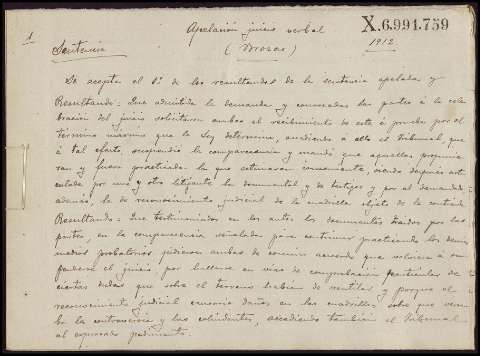 1
Apelación juicio verbal
X.6.991.759
(Brozas)
1912
Sentencia
Se acepta el 1º de los resultandos de la sentencia apelada y
Resultando: Que admitida la demanda y convocadas las partes á la cele-
bración del juicio solicitaron ambas el recibimiento de este á prueba por el
término máximo que la Ley determina, accediendo á ello el Tribunal, que
á tal efecto, suspendió la comparecencia y mandó que aquellas propusie-
ran y fuera practicada la que estimaran conveniente, siendo después arti-
culada por una y otra litigante la documental y de testigos y por el demandado
además, la de reconocimiento judicial de la cuadrilla objeto de la contienda
Resultando: Que testimoniados en los autos los documentos traidos por las
partes, en la comparecencia señalada para continuar practicando los demás
medios probatorios pidieron ambas de comun acuerdo que volviera á sus-
penderse el juicio, por hallarse en vías de comprobación particular de
ciertas dudas que sobre el terreno habían de ventilar y porque el
reconocimiento judicial causaria daños en las cuadrillas sobre que versa-
ba la controversia y las colindantes, accediendo también el Tribunal
al expresado pedimento.